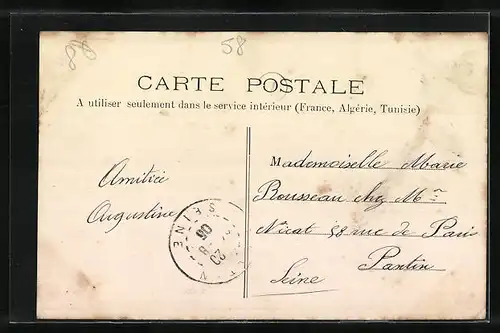 80
58
CARTE POSTALE
A utiliser seulement dans le service intérieur (France, Algérie, Tunisie)
Amitiés
Augustine
Mademoiselle Marie
Rousseau chez Mr
Nicat 58 rue de Paris
Pantin
Seine
SEINE